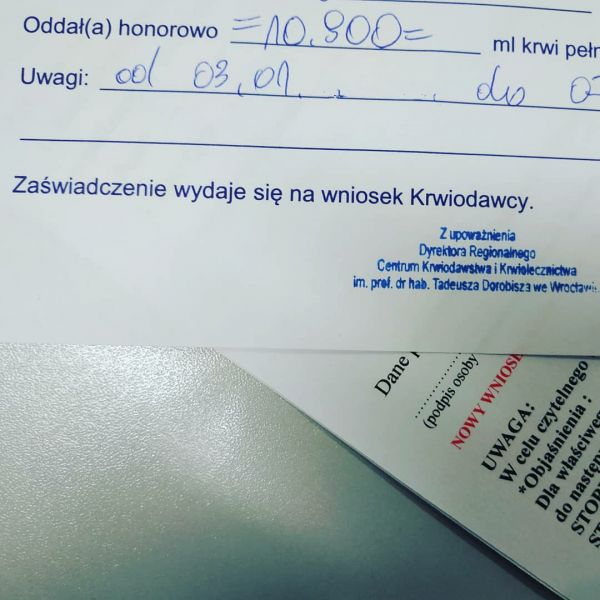 Oddał(a) honorowo =10.800= ml krwi pełn
Uwagi: od 03.01. do 0
Zaświadczenie wydaje się na wniosek Krwiodawcy.
Z upoważnienia
Dyrektora Regionalnego
Centrum Krwiodawstwa i Krwiolecznictwa
im. prof. dr hab. Tadeusza Dorobisza we Wrocławiu
Dane
(podpis osoby
NOWY WNIOSE
UWAGA:
W celu czytelnego
*Objaśnienia :
Dla właściweg
do następ
STOP